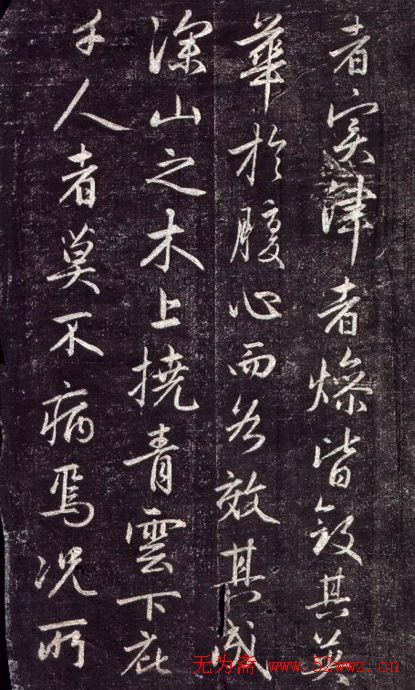 者實津者燥皆斂其英
華於腹心而各效其成
深山之木上撓青雲下庇
千人者莫不病焉況所
无为斋 www.52wwz.cn